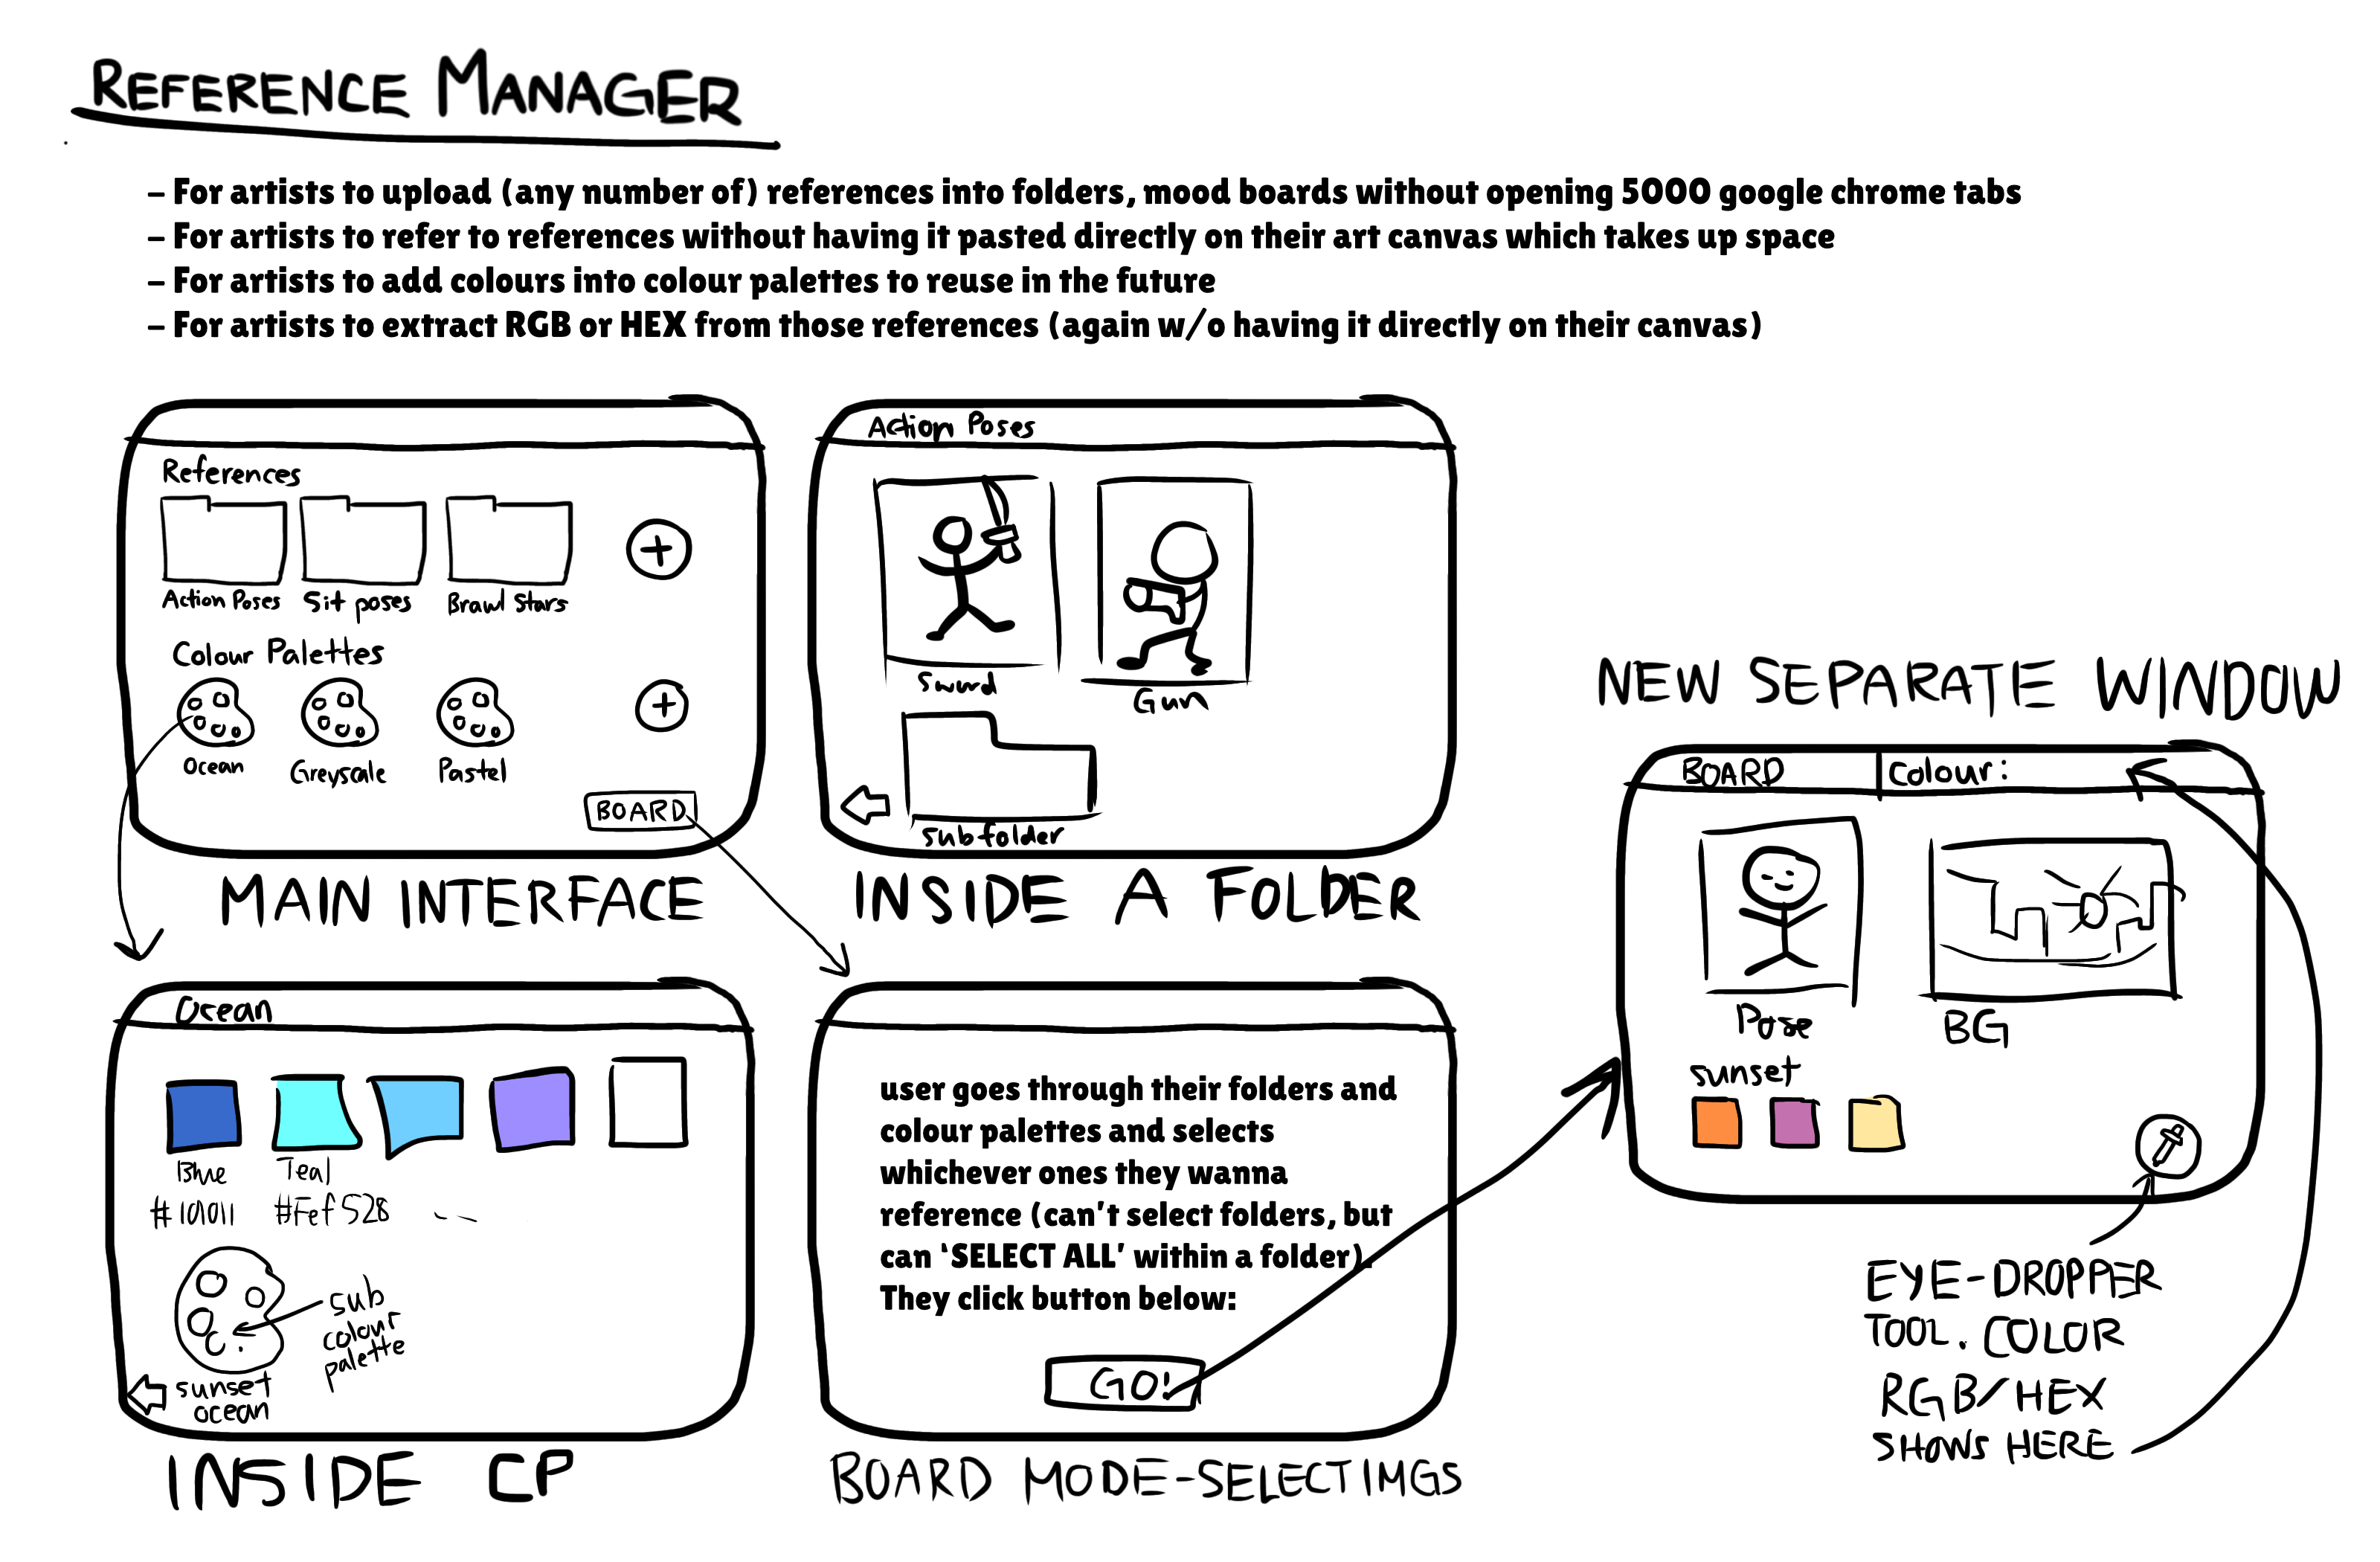 REFERENCE MANAGER
– For artists to upload (any number of) references into folders, mood boards without opening 5000 google chrome tabs
– For artists to refer to references without having it pasted directly on their art canvas which takes up space
– For artists to add colours into colour palettes to reuse in the future
– For artists to extract RGB or HEX from those references (again w/o having it directly on their canvas)
References
Action Poses
Sit poses
Brawl Stars
+
Colour Palettes
+
Ocean
Greyscale
Pastel
BOARD
MAIN INTERFACE
Action Poses
Sword
Gun
subfolder
INSIDE A FOLDER
Ocean
Blue
#101011
Teal
#Fef528
sub
colour
palette
sunset
ocean
INSIDE CP
user goes through their folders and
colour palettes and selects
whichever ones they wanna
reference (can't select folders, but
can 'SELECT ALL' within a folder).
They click button below:
GO!
BOARD MODE-SELECT IMGS
NEW SEPARATE WINDOW
BOARD
Colour:
Pose
BG
sunset
EYE-DROPPER
TOOL. COLOR
RGB/HEX
SHOWS HERE